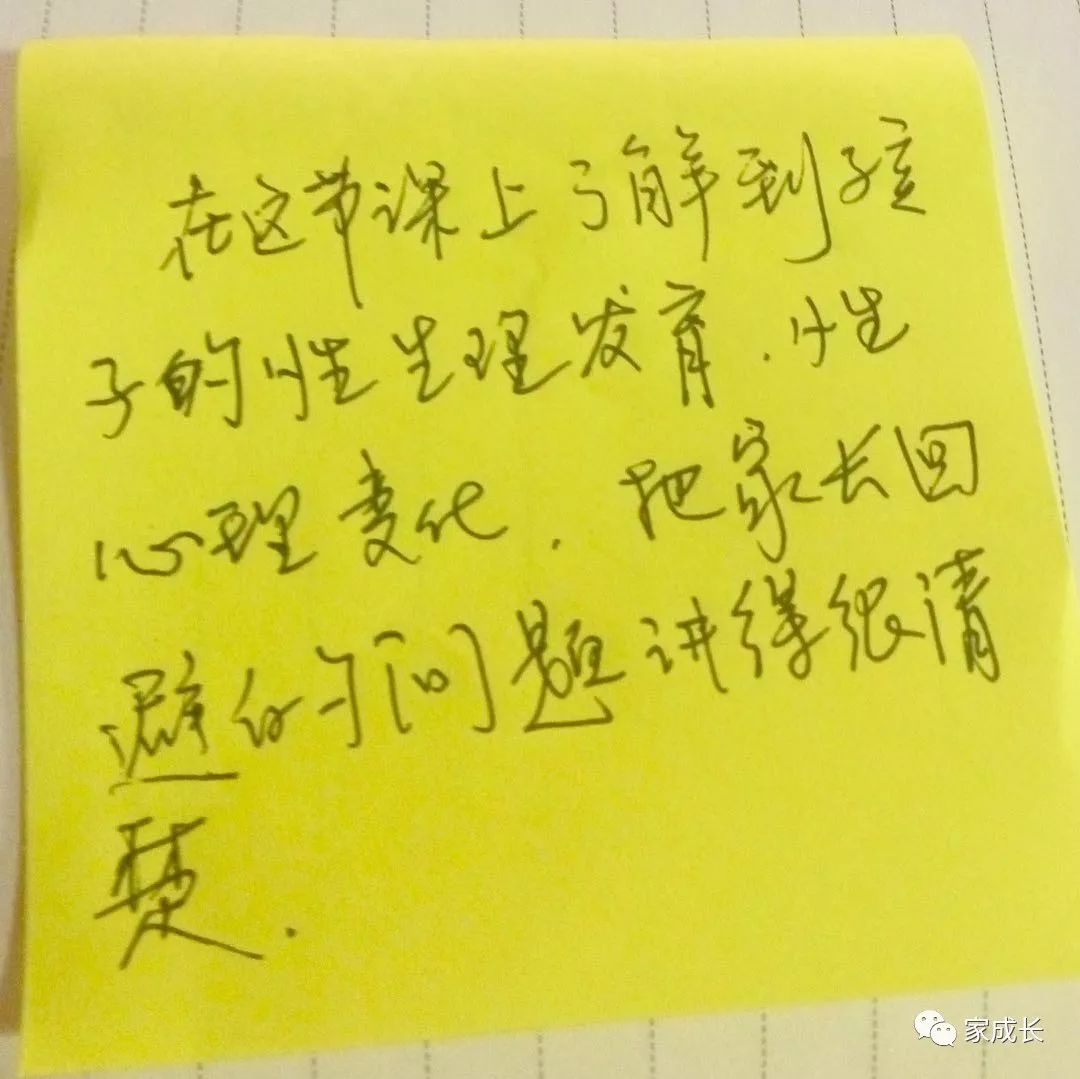 在这节课上了解到孩
子的性生理发育.性
心理变化.把家长回
避的问题讲得很清
楚.
家成长